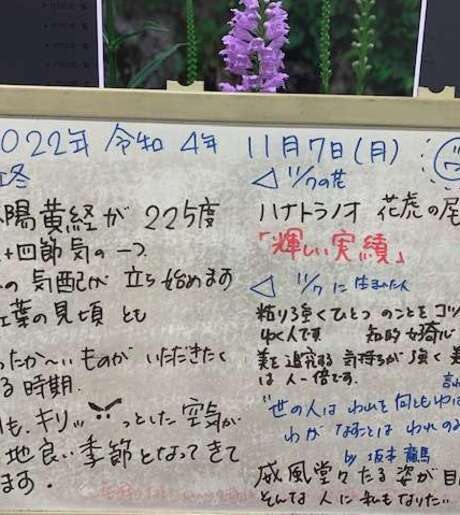 2022年 令和 4年 11月7日(月)
立冬
太陽黄経が 225度
二十四節気の一つ
の 気配が 立ち始めます
紅葉の見頃 とも
ったか〜い ものが いただきたく
る 時期.
も、キリッ っとした 空気が
地良い 季節となってきて
ます.
◁ 11/7の花
ハナトラノオ 花虎の尾
「輝しい実績」
◁ 11/7に 生まれた人
粘り強くひとつ のことを コツ
ゆく人です 知的好奇心
美を追究する 気持ちが 強く 美
は 人一倍です.
"世の人は われを何ともゆは
わが なすことは われのみ
by 坂本 龍馬
威風堂々たる姿が 目
そんな 人に 私もなりたい.